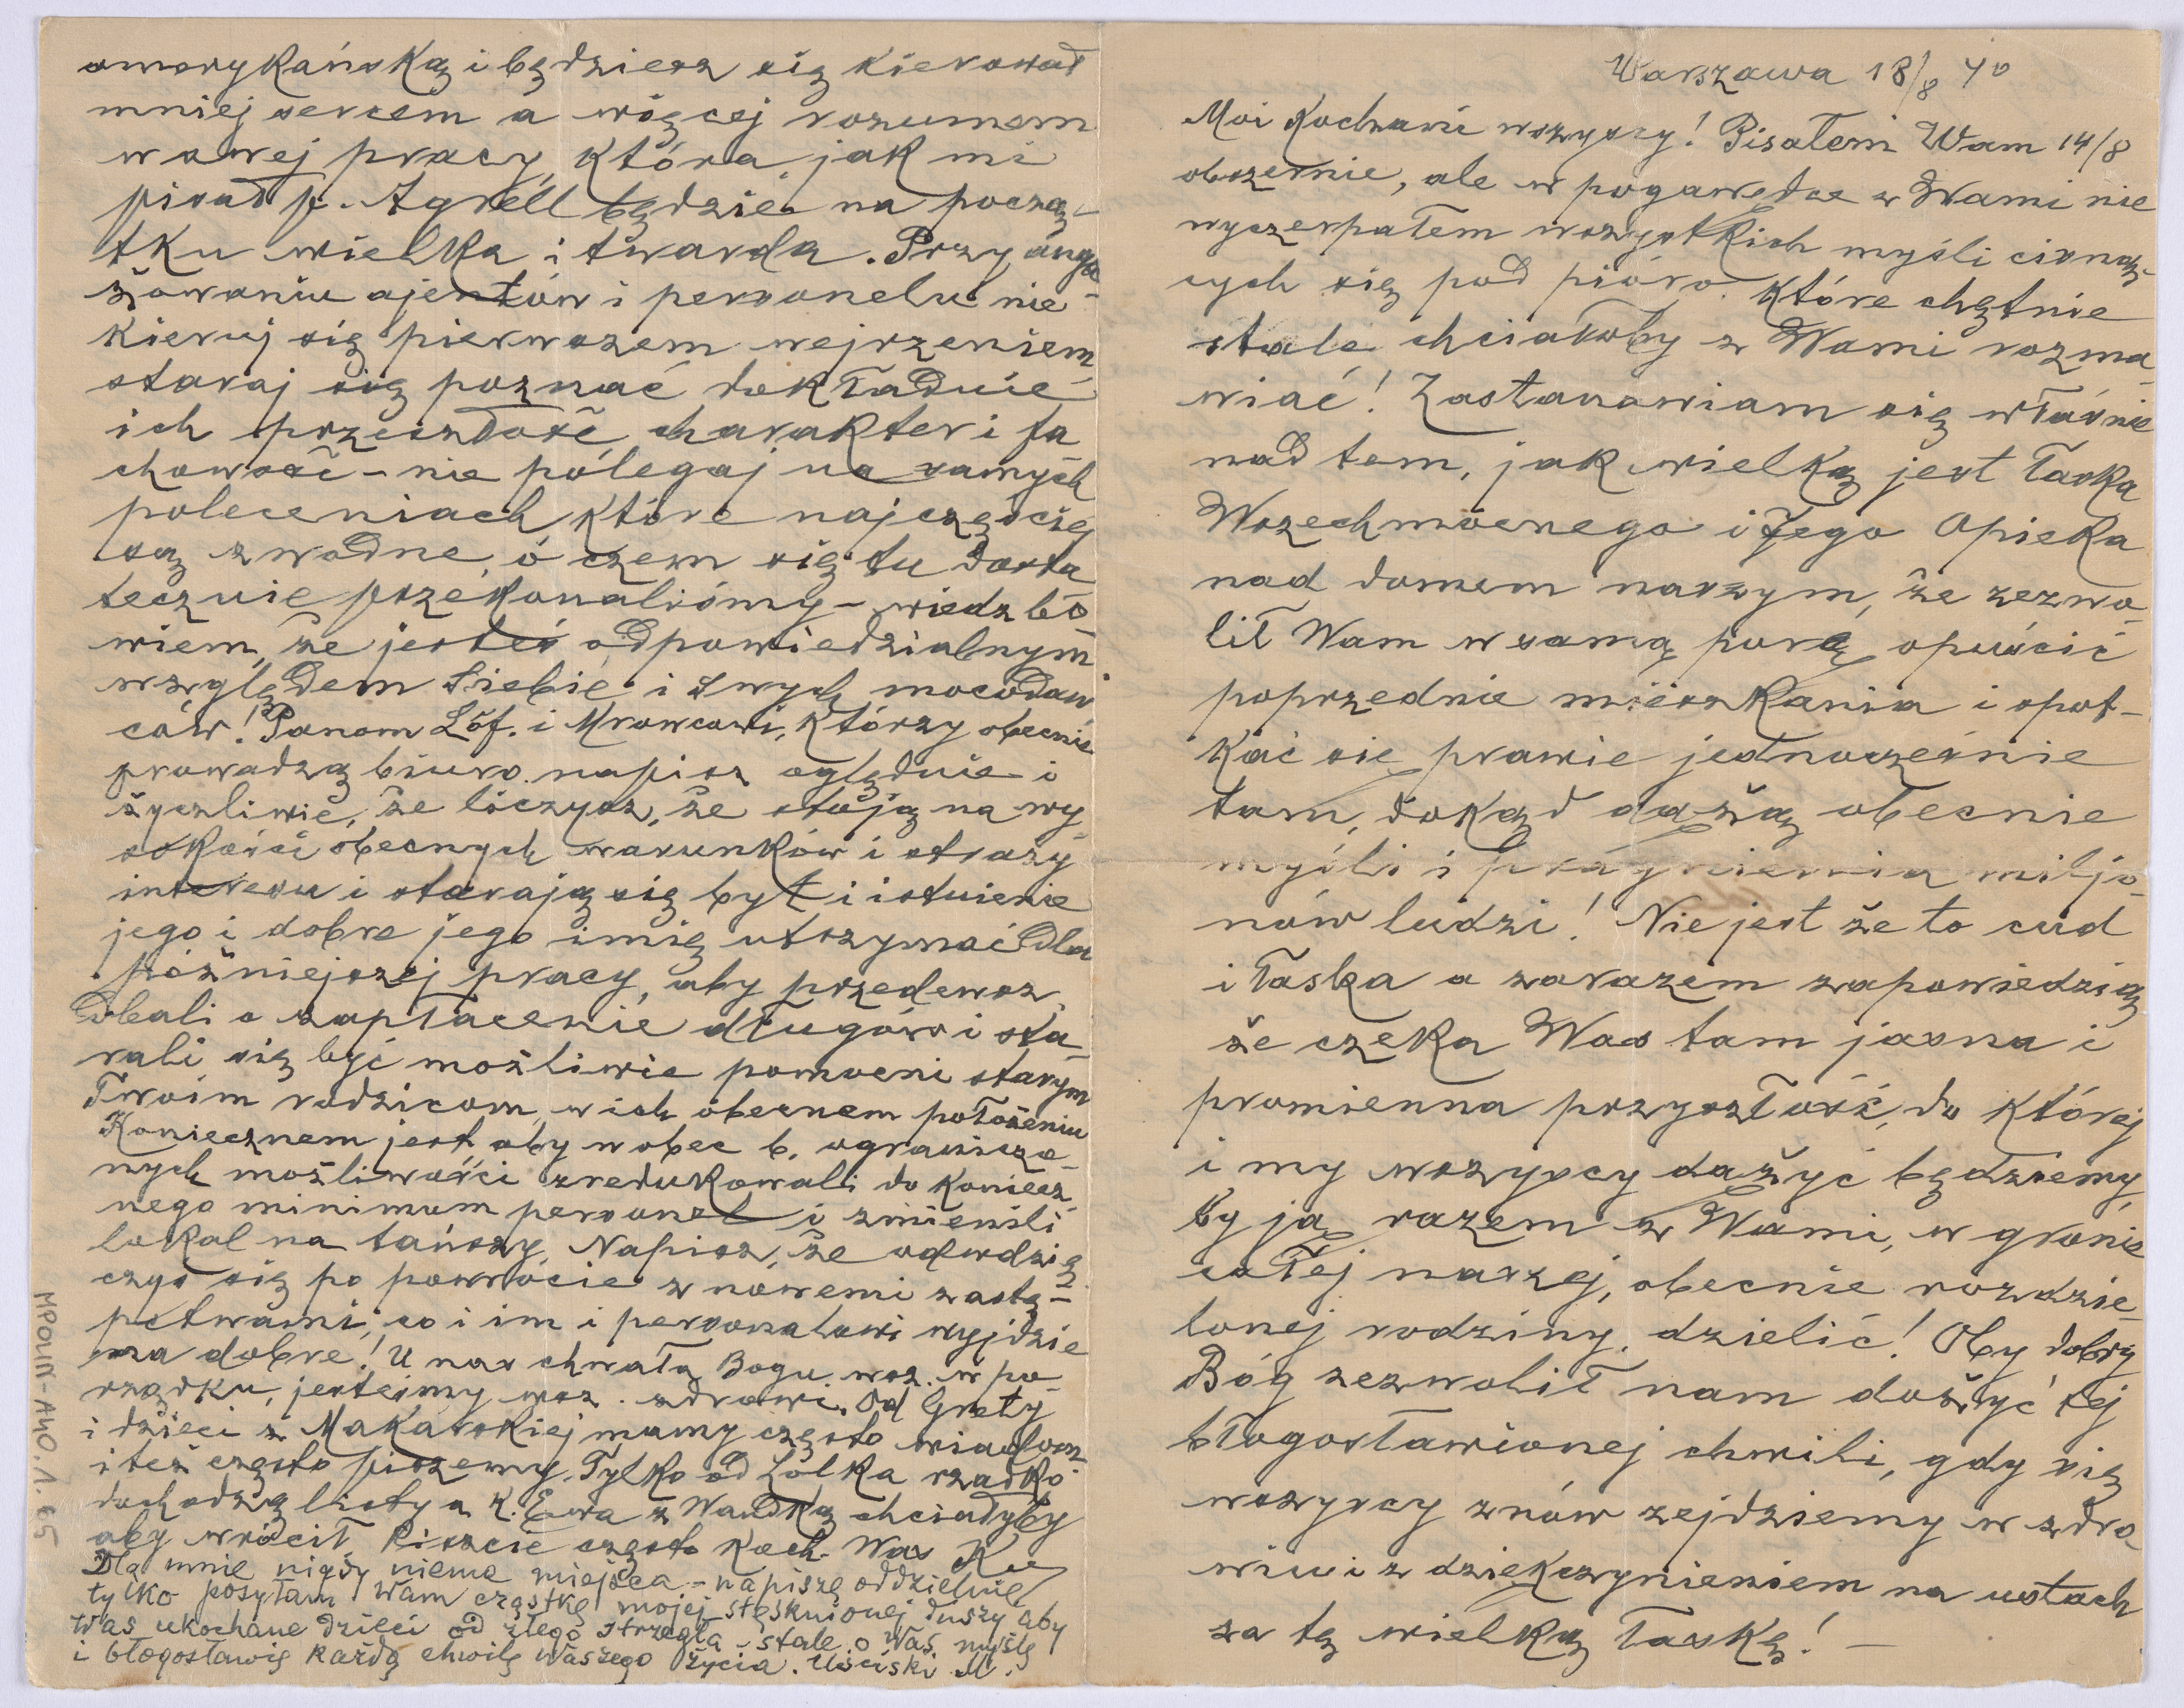 Warszawa 18/8 40
Moi Kochani wszyscy! Pisałem Wam 14/8
obszernie, ale w pogawędce z Wami nie
wyczerpałem wszystkich myśli cisną-
cych się pod pióro. które chętnie
stale chciałoby z Wami rozma-
wiać! Zastanawiam się właśnie
nad tem, jak wielką jest łaska
Wszechmocnego i Jego Opieka
nad domem naszym, że zezwo-
lił Wam w samą porę opuścić
poprzednie mieszkania i spot-
kać się prawie jednocześnie
tam, dokąd dążą obecnie
myśli i pragnienia miljo-
nów ludzi! Nie jest że to cud
i łaska a zarazem zapowiedzią
że czeka Was tam jasna i
promienna przyszłość, do której
i my wszyscy dążyć będziemy,
by ją razem z Wami, w gronie
całej naszej, obecnie rozdzie-
lonej rodziny, dzielić! Oby dobry
Bóg zezwolił nam dożyć tej
błogosławionej chwili, gdy się
wszyscy znów zejdziemy w zdro-
wiu i z dziękczynieniem na ustach
za tę wielką łaskę! —
amerykańską i będziesz się kierował
mniej sercem a więcej rozumem
w swej pracy, która, jak mi
pisał p. Agrell będzie na począ-
tku wielka i twarda. Przy anga-
żowaniu ajentów i personelu nie
kieruj się pierwszem wejrzeniem
staraj się poznać dokładnie
ich przeszłość, charakter i fa
chowość – nie polegaj na samych
poleceniach, które najczęściej
są zwodne, o czem się tu dosta
tecznie przekonaliśmy – wiedz bo
wiem, że jesteś odpowiedzialnym
względem Siebie i swych mocodaw
ców! Panom Löf. i Mrowcowi, którzy obecnie
prowadzą biuro. napisz oględnie i
życzliwie, że liczysz, że stoją na wy
sokości obecnych warunków i straży
interesu i starają się byt i istnienie
jego i dobre jego imię utrzymać dla
późniejszej pracy, aby przedewsz.
dbali o zapłacenie długów i sta-
rali się być możliwie pomocni starym
Twoim rodzicom, w ich obecnem położeniu
Koniecznem jest aby wobec b. ogranicza-
nych możliwości zredukowali do koniecz
nego minimum personel i zmienili
lokal na tańszy. Napisz, że odwdzię
czys się po powrócie z nowemi zastę-
pstwami, co i im i personalowi wyjdzie
na dobre! U nas chwała Bogu wsz. w po-
rządku, jesteśmy wsz. zdrowi. Od Grety
i dzieci z Makarskiej mamy często wiadom
i też często piszemy. Tylko od Lolka rzadko
dochodzą listy a K. Ewa z Wandką chciałyby
aby wrócił. Piszcie często Koch. Was
Dla mnie nigdy niema miejsca – napiszę oddzielnie
tylko posyłam Wam cząstkę mojej stęsknionej duszy aby
Was ukochane dzieci od złego strzegła – stale o Was myślę
i błogosławię każdą chwilę Waszego życia. Uściski M.
MPOLIN-A40.1.65